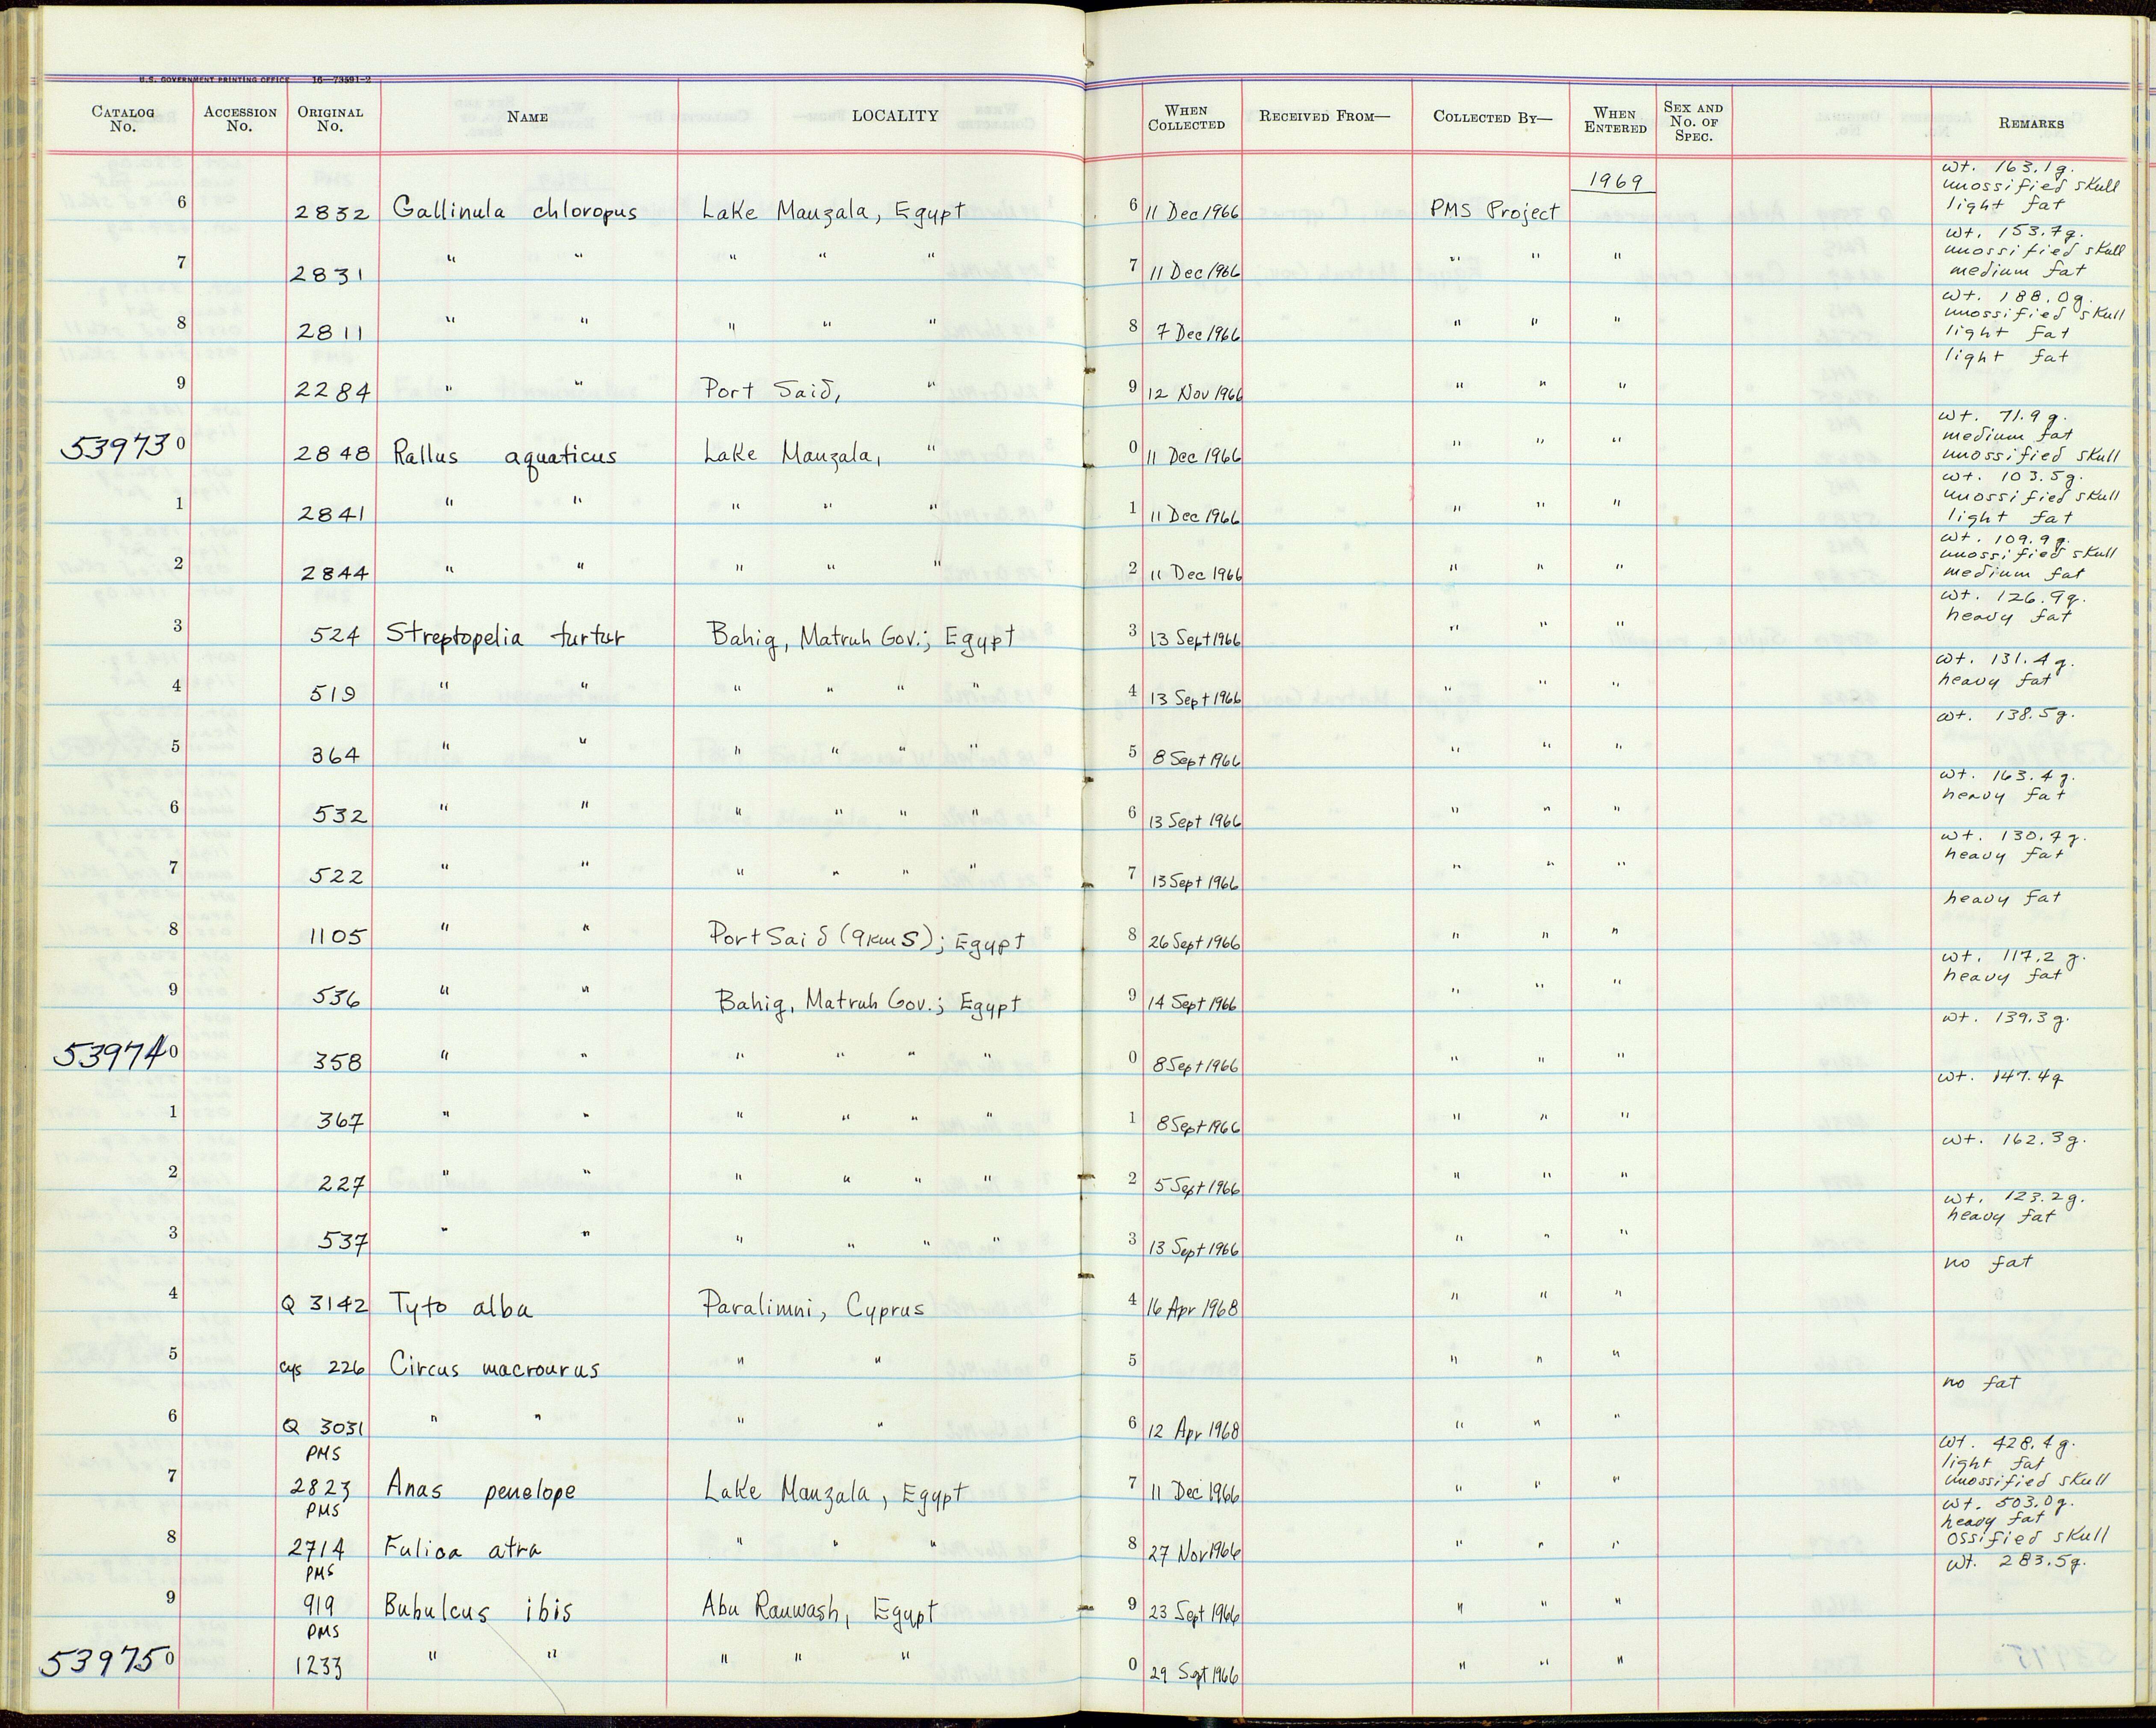 U.S. GOVERNMENT PRINTING OFFICE 16—73591-2
CATALOG No. ACCESSION No. ORIGINAL No. NAME LOCALITY WHEN COLLECTED RECEIVED FROM— COLLECTED BY— WHEN ENTERED SEX AND No. OF SPEC. REMARKS
1969
6 2832 Gallinula chloropus Lake Manzala, Egypt 6 11 Dec 1966 PMS Project wt. 163.1g. unossified skull light fat
7 2831 " " " " " 7 11 Dec 1966 " " " wt. 153.7g. unossified skull medium fat
8 2811 " " " " " 8 7 Dec 1966 " " " wt. 188.0g. unossified skull light fat
9 2284 " " Port Said, " 9 12 Nov 1966 " " " light fat
53973 0 2848 Rallus aquaticus Lake Manzala, " 0 11 Dec 1966 " " " wt. 71.9g. medium fat unossified skull
1 2841 " " " " " 1 11 Dec 1966 " " " wt. 103.5g. unossified skull light fat
2 2844 " " " " " 2 11 Dec 1966 " " " wt. 109.9g. unossified skull medium fat
3 524 Streptopelia turtur Bahig, Matruh Gov.; Egypt 3 13 Sept 1966 " " " wt. 126.9g. heavy fat
4 519 " " " " " " 4 13 Sept 1966 " " " wt. 131.4g. heavy fat
5 364 " " " " " " 5 8 Sept 1966 " " " wt. 138.5g.
6 532 " " " " " " 6 13 Sept 1966 " " " wt. 163.4g. heavy fat
7 522 " " " " " " 7 13 Sept 1966 " " " wt. 130.7g. heavy fat
8 1105 " " Port Said (9km S); Egypt 8 26 Sept 1966 " " " heavy fat
9 536 " " Bahig, Matruh Gov.; Egypt 9 14 Sept 1966 " " " wt. 117.2 g. heavy fat
53974 0 358 " " " " " " 0 8 Sept 1966 " " " wt. 139.3g.
1 367 " " " " " " 1 8 Sept 1966 " " " wt. 147.4g
2 227 " " " " " " 2 5 Sept 1966 " " " wt. 162.3g.
3 537 " " " " " " 3 13 Sept 1966 " " " wt. 123.2g. heavy fat
4 Q 3142 Tyto alba Paralimni, Cyprus 4 16 Apr 1968 " " " no fat
5 cys 226 Circus macrourus " " 5 " " "
6 Q 3031 " " " " 6 12 Apr 1968 " " " no fat
PMS
7 2823 Anas penelope Lake Manzala, Egypt 7 11 Dec 1966 " " " wt. 428.4g. light fat unossified skull
PMS
8 2714 Fulica atra " " " 8 27 Nov 1966 " " " wt. 503.0g. heavy fat ossified skull
PMS
9 919 Bubulcus ibis Abu Rauwash, Egypt 9 23 Sept 1966 " " " wt. 283.5g.
PMS
53975 0 1233 " " " " " 0 29 Sept 1966 " " "